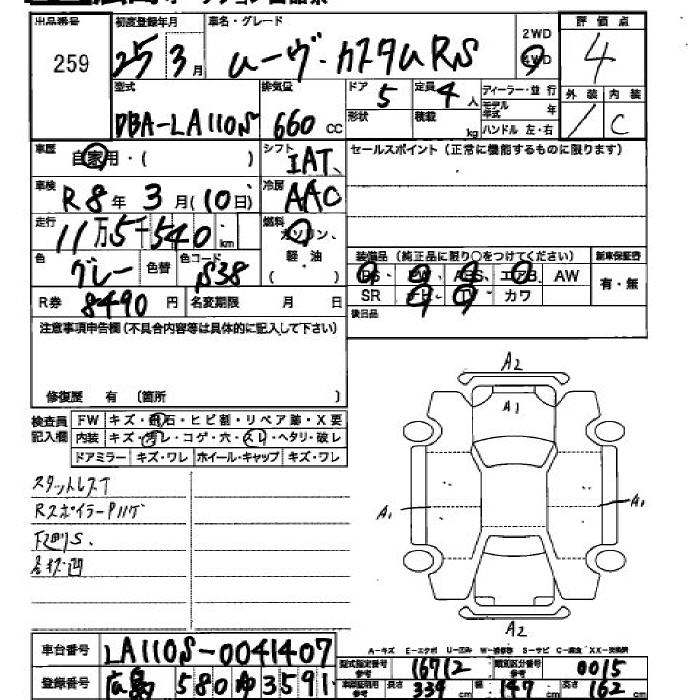 出品番号 初度登録年月 車名・グレード 2WD 評価点
259 25年3月 ムーヴ・カスタムRS 4WD 4
型式 排気量 ドア 5 定員 4人 ディーラー・並行 外装 内装
DBA-LA110S 660cc 形状 積載 kg モデル年式 年 ハンドル 左・右 / C
車歴 自家用・( ) シフト IAT セールスポイント(正常に機能するものに限ります)
車検 R8年3月(10日) 冷房 AAC
走行 11万5千540km 燃料 ガソリン、軽・油 ( )
装備品 (純正品に限り○をつけてください) 新車保証書
色 グレー 色替 色コード S38 PS PW ABS エアB AW 有・無
SR ナビ TV カワ
R券 8490円 名変期限 月 日 後日品
注意事項申告欄(不具合内容等は具体的に記入して下さい)
修復歴 有 (箇所 )
検査員記入欄 FW キズ・飛石・ヒビ割・リペア跡・X要
内装 キズ・汚レ・コゲ・穴・スレ・ヘタリ・破レ
ドアミラー キズ・ワレ ホイール・キャップ キズ・ワレ
スタットレスT
Rスポイラー
下廻りS、
A2
A1
A1 A1
A2
A-キズ E-エクボ U-凹ミ W-補修跡 S-サビ C-腐食 XX-交換済
車台番号 LA110S-0041407
登録番号 広島 580 ゆ 3591
型式指定番号 参考 16712 類別区分番号 参考 0015
車庫証明用 参考 長さ 339cm 幅 147cm 高さ 162cm